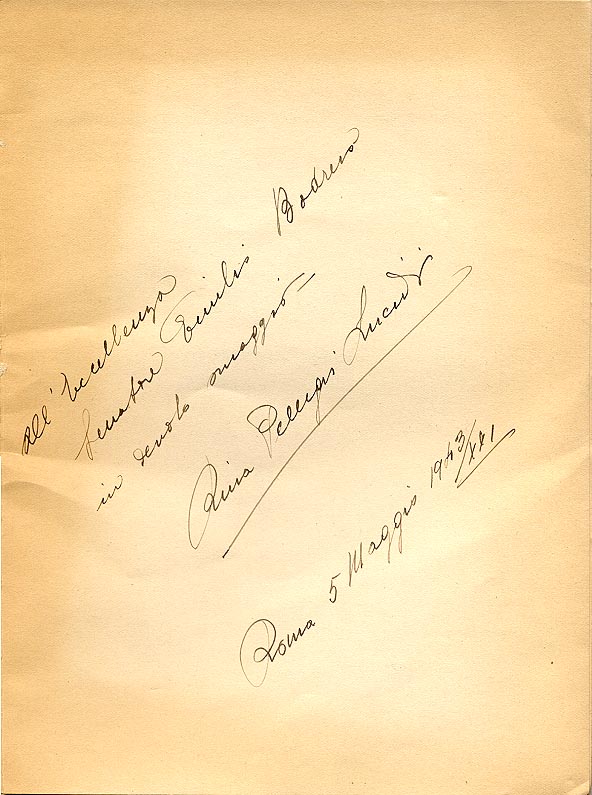 All'Eccellenza
Senatore Emilio Bodrero
in devoto omaggio –
Rina Pellegri Lucidi
Roma 5 Maggio 1943/XXI